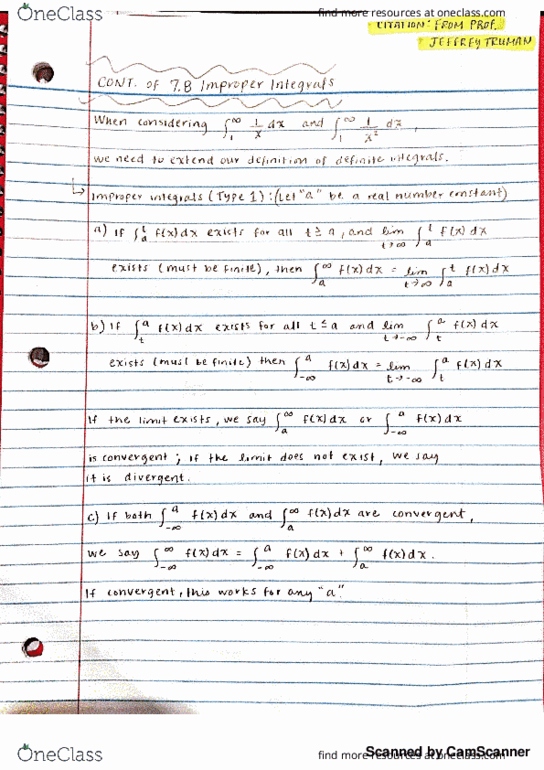 OneClass
find more resources at oneclass.com
CITATION: FROM PROF.
JEFFREY TRUMAN
CONT. of 7.8 Improper Integrals
When considering ∫₁^∞ 1/x dx and ∫₁^∞ 1/x² dx,
we need to extend our definition of definite integrals.
↳ Improper integrals (Type 1): (Let "a" be a real number constant)
a) if ∫ₐ^t f(x)dx exists for all t ≥ a, and lim t→∞ ∫ₐ^t f(x)dx
exists (must be finite), then ∫ₐ^∞ f(x)dx = lim t→∞ ∫ₐ^t f(x)dx
b) if ∫_t^a f(x)dx exists for all t ≤ a and lim t→-∞ ∫_t^a f(x)dx
exists (must be finite) then ∫_-∞^a f(x)dx = lim t→-∞ ∫_t^a f(x)dx
If the limit exists, we say ∫ₐ^∞ f(x)dx or ∫_-∞^a f(x)dx
is convergent; if the limit does not exist, we say
it is divergent.
c) If both ∫_-∞^a f(x)dx and ∫ₐ^∞ f(x)dx are convergent,
we say ∫_-∞^∞ f(x)dx = ∫_-∞^a f(x)dx + ∫ₐ^∞ f(x)dx.
If convergent, this works for any "a".
OneClass
find more resources at oneclass.com
Scanned by CamScanner